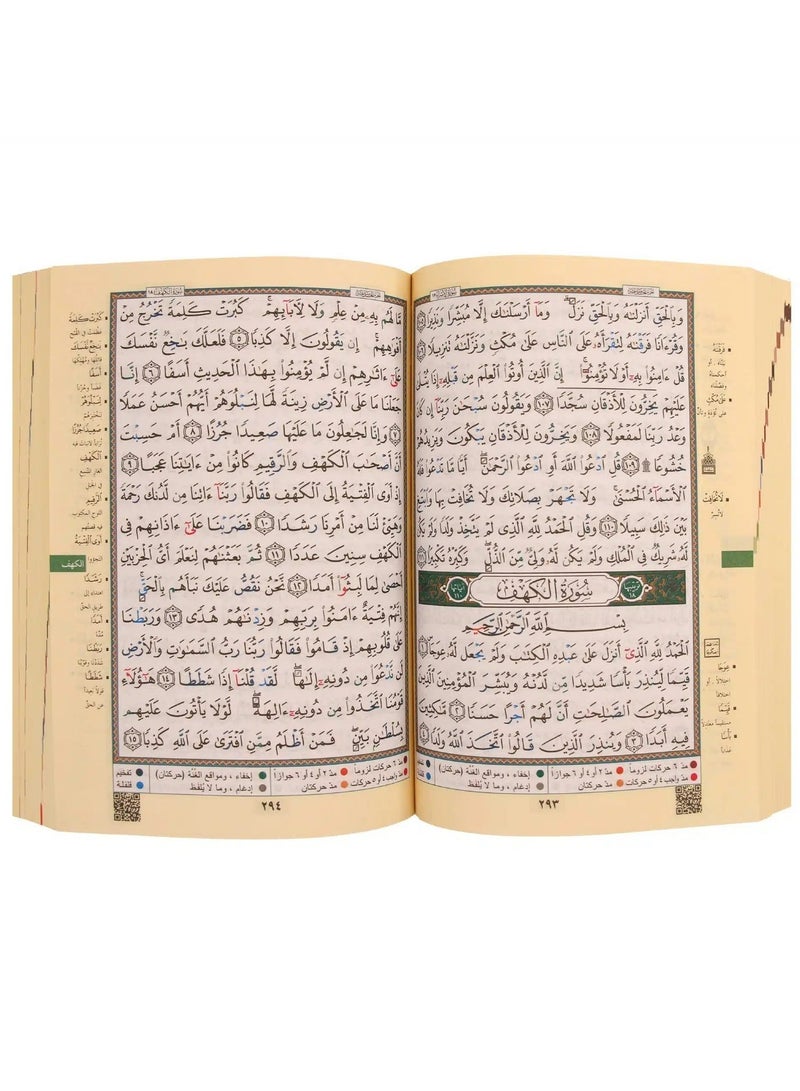 وَبِالْحَقِّ أَنزَلْنَٰهُ وَبِالْحَقِّ نَزَلَ ۗ وَمَآ أَرْسَلْنَٰكَ إِلَّا مُبَشِّرًا وَنَذِيرًا ١٠٥
وَقُرْءَانًا فَرَقْنَٰهُ لِتَقْرَأَهُۥ عَلَى ٱلنَّاسِ عَلَىٰ مُكْثٍ وَنَزَّلْنَٰهُ تَنزِيلًا ١٠٦
قُلْ ءَامِنُوا۟ بِهِۦٓ أَوْ لَا تُؤْمِنُوٓا۟ ۚ إِنَّ ٱلَّذِينَ أُوتُوا۟ ٱلْعِلْمَ مِن قَبْلِهِۦٓ إِذَا يُتْلَىٰ
عَلَيْهِمْ يَخِرُّونَ لِلْأَذْقَانِ سُجَّدًا ١٠٧ وَيَقُولُونَ سُبْحَٰنَ رَبِّنَآ إِن كَانَ
وَعْدُ رَبِّنَا لَمَفْعُولًا ١٠٨ وَيَخِرُّونَ لِلْأَذْقَانِ يَبْكُونَ وَيَزِيدُهُمْ
خُشُوعًا ۩ ١٠٩ قُلِ ٱدْعُوا۟ ٱللَّهَ أَوِ ٱدْعُوا۟ ٱلرَّحْمَٰنَ ۖ أَيًّا مَّا تَدْعُوا۟ فَلَهُ
ٱلْأَسْمَآءُ ٱلْحُسْنَىٰ ۚ وَلَا تَجْهَرْ بِصَلَاتِكَ وَلَا تُخَافِتْ بِهَا وَٱبْتَغِ
بَيْنَ ذَٰلِكَ سَبِيلًا ١١٠ وَقُلِ ٱلْحَمْدُ لِلَّهِ ٱلَّذِى لَمْ يَتَّخِذْ وَلَدًا وَلَمْ يَكُن
لَّهُۥ شَرِيكٌ فِى ٱلْمُلْكِ وَلَمْ يَكُن لَّهُۥ وَلِىٌّ مِّنَ ٱلذُّلِّ ۖ وَكَبِّرْهُ تَكْبِيرًۢا ١١١
سُورَةُ الكَهْفِ
بِسْمِ ٱللَّهِ ٱلرَّحْمَٰنِ ٱلرَّحِيمِ
ٱلْحَمْدُ لِلَّهِ ٱلَّذِىٓ أَنزَلَ عَلَىٰ عَبْدِهِ ٱلْكِتَٰبَ وَلَمْ يَجْعَل لَّهُۥ عِوَجَا ۜ ١
قَيِّمًا لِّيُنذِرَ بَأْسًا شَدِيدًا مِّن لَّدُنْهُ وَيُبَشِّرَ ٱلْمُؤْمِنِينَ ٱلَّذِينَ
يَعْمَلُونَ ٱلصَّٰلِحَٰتِ أَنَّ لَهُمْ أَجْرًا حَسَنًا ٢ مَّٰكِثِينَ
فِيهِ أَبَدًا ٣ وَيُنذِرَ ٱلَّذِينَ قَالُوا۟ ٱتَّخَذَ ٱللَّهُ وَلَدًا ٤
مدّ ٦ حركات لزوماً مدّ ٢ أو ٤ أو ٦ جوازاً إخفاء ، ومواقع الغُنّة (حركتان)
مدّ واجب ٤ أو ٥ حركات مدّ حركتان إدغام ، وما لا يُلفظ
٢٩٣
فَرَقْنَٰهُ
عَلَىٰ مُكْثٍ
لَا تُخَافِتْ
لا تُسِرّ
عِوَجًا
قَيِّمًا
بَأْسًا
عذاباً
مَّا لَهُم بِهِۦ مِنْ عِلْمٍ وَلَا لِـَٔابَآئِهِمْ ۚ كَبُرَتْ كَلِمَةً تَخْرُجُ مِنْ
أَفْوَٰهِهِمْ ۚ إِن يَقُولُونَ إِلَّا كَذِبًا ٥ فَلَعَلَّكَ بَٰخِعٌ نَّفْسَكَ
عَلَىٰٓ ءَاثَٰرِهِمْ إِن لَّمْ يُؤْمِنُوا۟ بِهَٰذَا ٱلْحَدِيثِ أَسَفًا ٦ إِنَّا
جَعَلْنَا مَا عَلَى ٱلْأَرْضِ زِينَةً لَّهَا لِنَبْلُوَهُمْ أَيُّهُمْ أَحْسَنُ عَمَلًا
٧ وَإِنَّا لَجَٰعِلُونَ مَا عَلَيْهَا صَعِيدًا جُرُزًا ٨ أَمْ حَسِبْتَ
أَنَّ أَصْحَٰبَ ٱلْكَهْفِ وَٱلرَّقِيمِ كَانُوا۟ مِنْ ءَايَٰتِنَا عَجَبًا ٩
إِذْ أَوَى ٱلْفِتْيَةُ إِلَى ٱلْكَهْفِ فَقَالُوا۟ رَبَّنَآ ءَاتِنَا مِن لَّدُنكَ رَحْمَةً
وَهَيِّئْ لَنَا مِنْ أَمْرِنَا رَشَدًا ١٠ فَضَرَبْنَا عَلَىٰٓ ءَاذَانِهِمْ فِى
ٱلْكَهْفِ سِنِينَ عَدَدًا ١١ ثُمَّ بَعَثْنَٰهُمْ لِنَعْلَمَ أَىُّ ٱلْحِزْبَيْنِ
أَحْصَىٰ لِمَا لَبِثُوٓا۟ أَمَدًا ١٢ نَّحْنُ نَقُصُّ عَلَيْكَ نَبَأَهُم بِٱلْحَقِّ ۚ
إِنَّهُمْ فِتْيَةٌ ءَامَنُوا۟ بِرَبِّهِمْ وَزِدْنَٰهُمْ هُدًى ١٣ وَرَبَطْنَا
عَلَىٰ قُلُوبِهِمْ إِذْ قَامُوا۟ فَقَالُوا۟ رَبُّنَا رَبُّ ٱلسَّمَٰوَٰتِ وَٱلْأَرْضِ
لَن نَّدْعُوَا۟ مِن دُونِهِۦٓ إِلَٰهًا ۖ لَّقَدْ قُلْنَآ إِذًا شَطَطًا ١٤ هَٰٓؤُلَآءِ
قَوْمُنَا ٱتَّخَذُوا۟ مِن دُونِهِۦٓ ءَالِهَةً ۖ لَّوْلَا يَأْتُونَ عَلَيْهِم
بِسُلْطَٰنٍۭ بَيِّنٍ ۖ فَمَنْ أَظْلَمُ مِمَّنِ ٱفْتَرَىٰ عَلَى ٱللَّهِ كَذِبًا ١٥
مدّ ٦ حركات لزوماً مدّ ٢ أو ٤ أو ٦ جوازاً إخفاء ، ومواقع الغُنّة (حركتان) تفخيم
مدّ واجب ٤ أو ٥ حركات مدّ حركتان إدغام ، وما لا يُلفظ قلقلة
٢٩٤
كَبُرَتْ كَلِمَةً
بَٰخِعٌ نَّفْسَكَ
أَسَفًا
لِنَبْلُوَهُمْ
صَعِيدًا جُرُزًا
الْكَهْفِ
الرَّقِيمِ
أَوَى الْفِتْيَةُ
الكهف
رَشَدًا
أَمَدًا
رَبَطْنَا
شَطَطًا